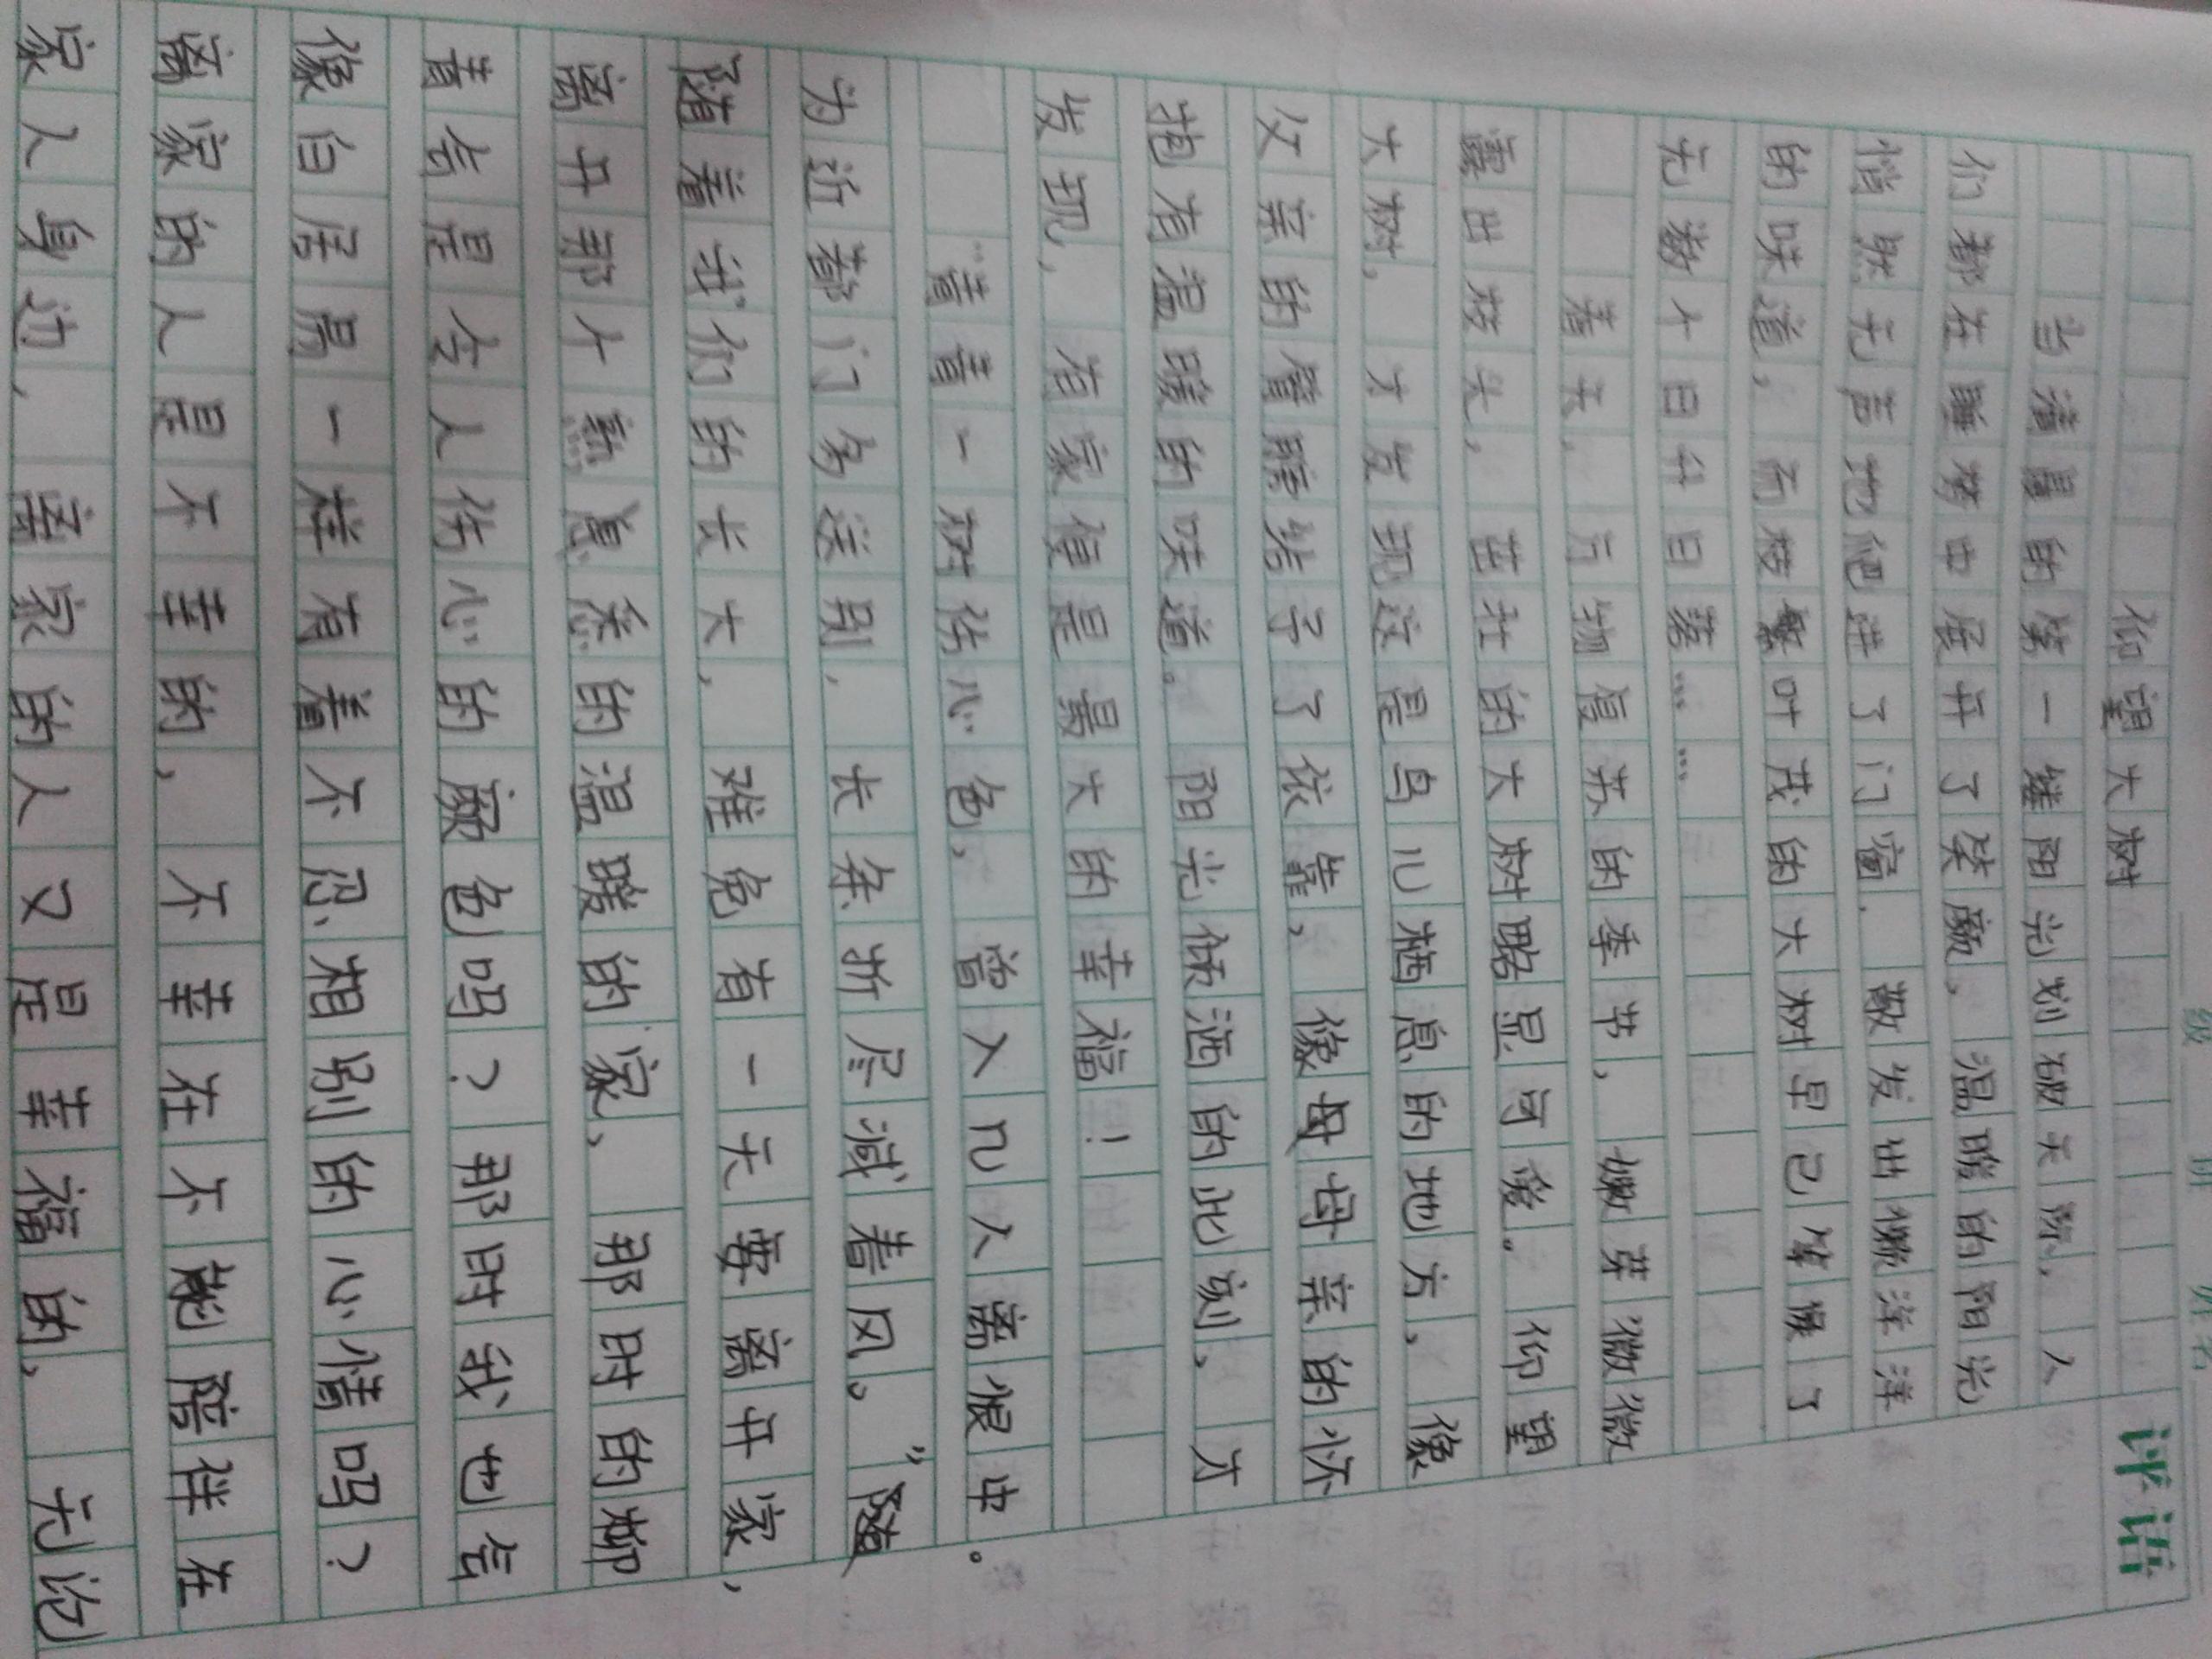 仰望大树
当清晨的第一缕阳光划破天际,人
们都在睡梦中展开了笑颜。温暖的阳光
悄然无声地爬进了门窗.散发出懒洋洋
的味道,而枝繁叶茂的大树早已等候了
无数个日升日落……
春天,万物复苏的季节,嫩芽微微
露出枝头,茁壮的大树略显可爱。仰望
大树,才发现这是鸟儿栖息的地方,像
父亲的臂膀给予了依靠,像母母亲的怀
抱有温暖的味道。阳光倾洒的此刻,才
发现,有家便是最大的幸福!
"青青一树伤心色,曾入几人离恨中。
为近都门多送别,长条折尽减春风。"随
随着我们的长大,难免有一天要离开家,
离开那个熟息悉的温暖的家,那时的柳
青会是令人伤心的颜色吗?那时我也会
像白居易一样有着不忍相别的心情吗?
离家的人是不幸的,不幸在不能陪伴在
家人身边,离家的人又是幸福的,无论
评语